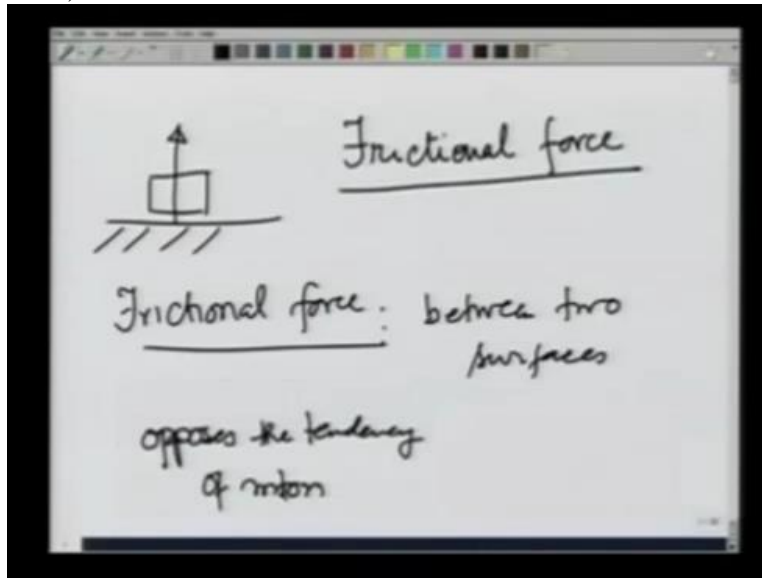 Frictional force
Frictional force : between two
surfaces
opposes the tendency
of motion